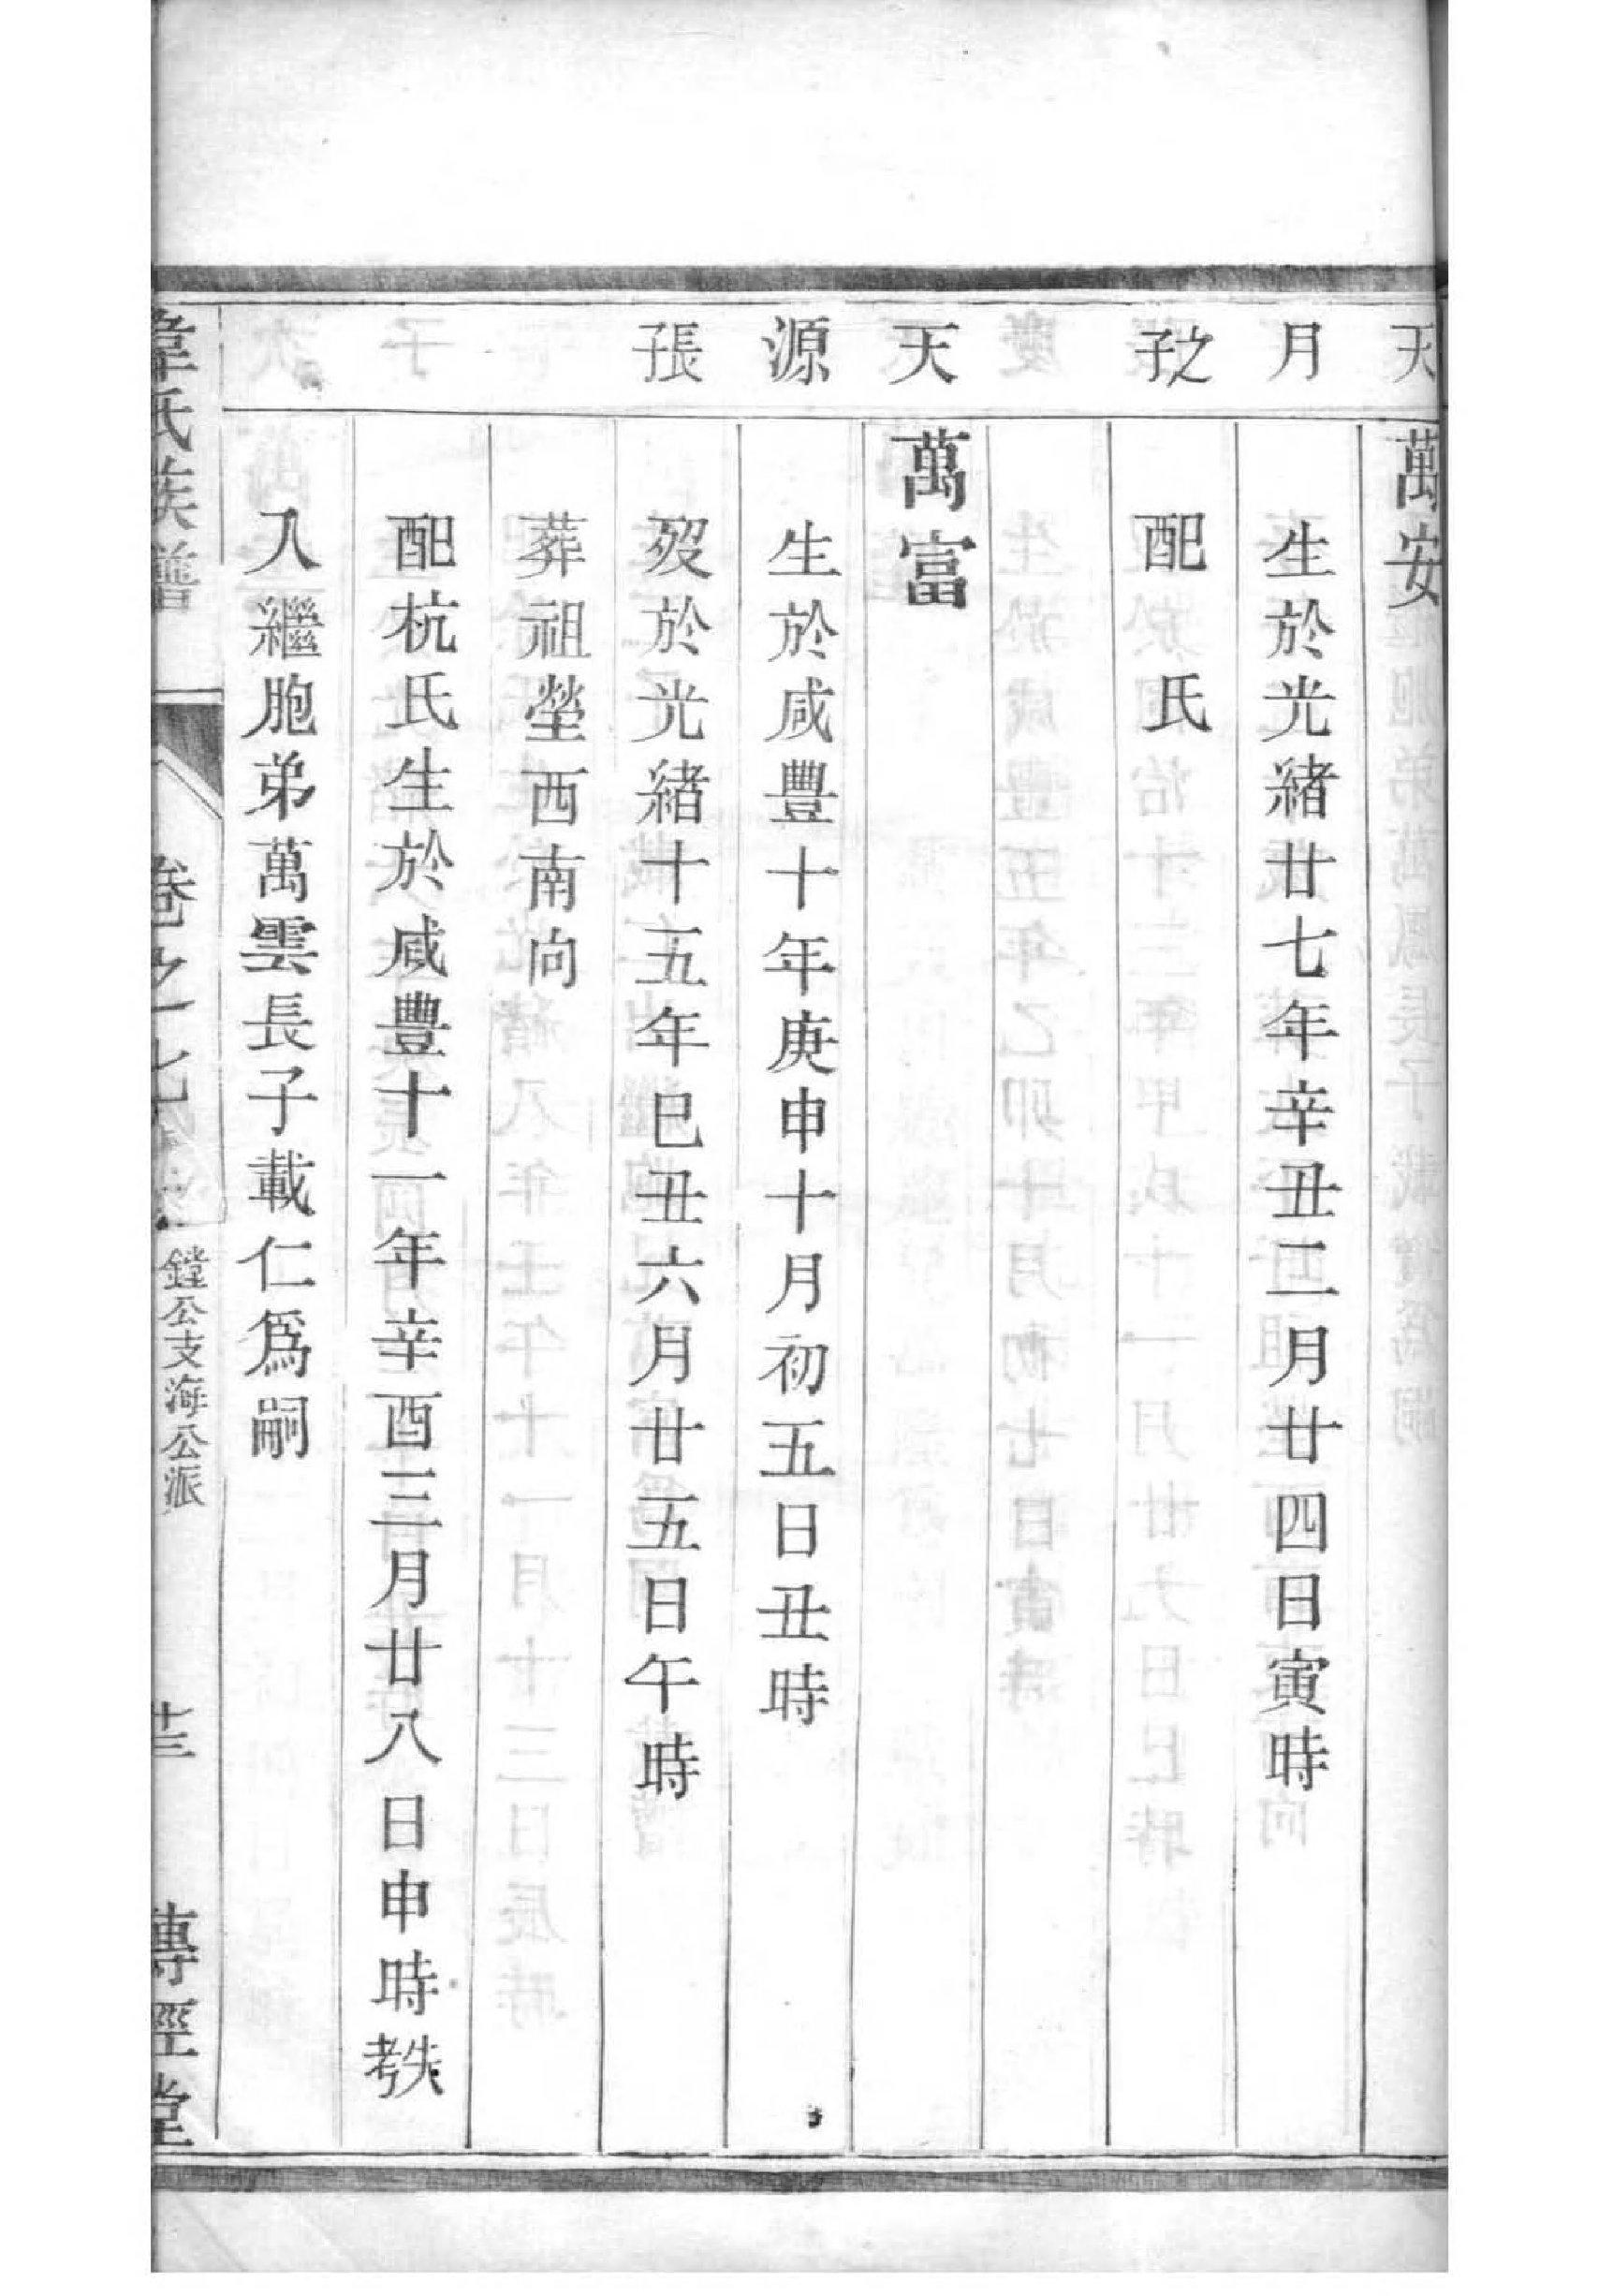 天 萬安
月 生於光緒廿七年辛丑二月廿四日寅時
之子 配 氏
天 萬富
源 生於咸豐十年庚申十月初五日丑時
張子 歿於光緒十五年巳丑六月廿五日午時
葬祖塋西南向
配杭氏生於咸豐十一年辛酉三月廿八日申時
入繼胞弟萬雲長子載仁爲嗣
韋氏族譜 卷之七 鏜公支海公派 廿三 傳經堂